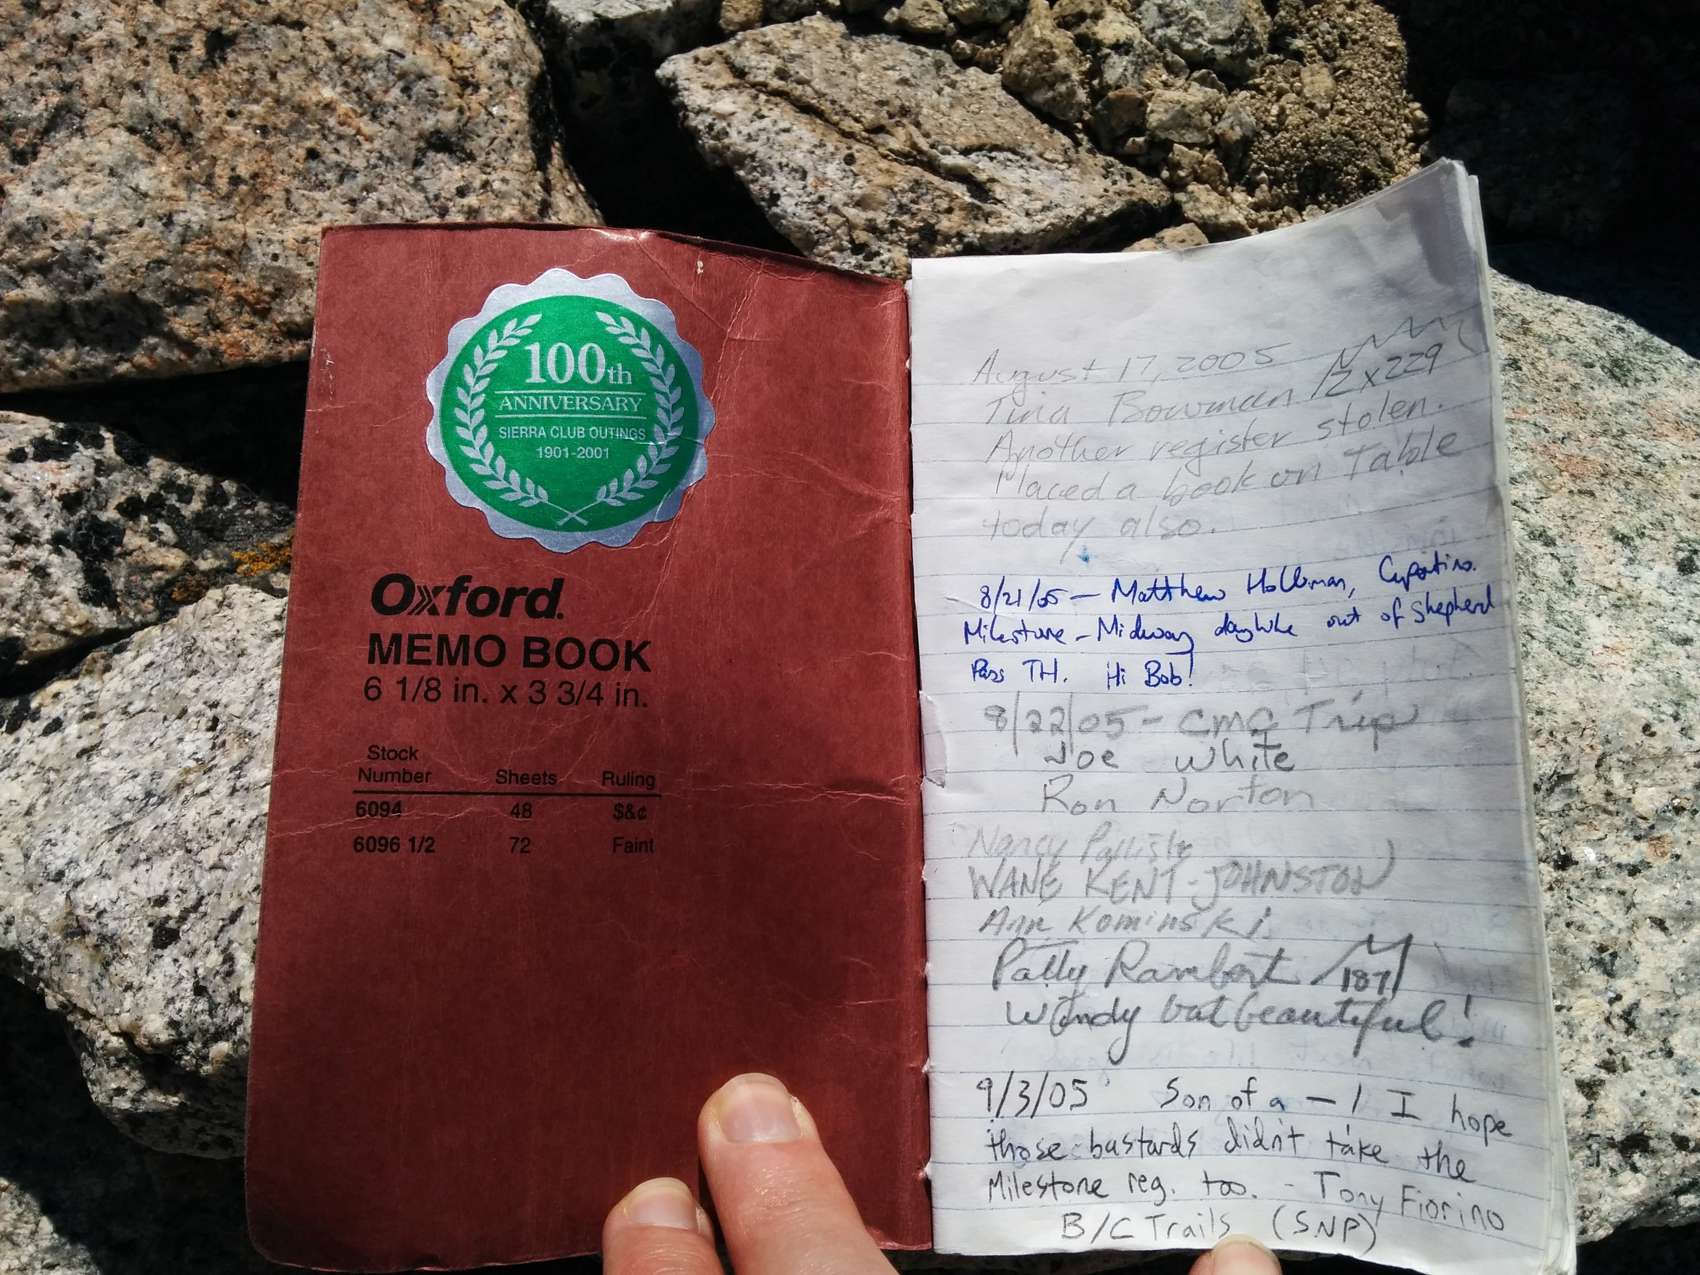 100th
ANNIVERSARY
SIERRA CLUB OUTINGS
1901-2001
Oxford
MEMO BOOK
6 1/8 in. x 3 3/4 in.
Stock
Number Sheets Ruling
6094 48 $&¢
6096 1/2 72 Faint
August 17, 2005
Tina Bowman 2x229
Another register stolen.
Placed a book on Table
today also.
8/21/05 - Matthew Holliman, Cupertino.
Milestone - Midway dayhike out of Shepherd
Pass TH. Hi Bob!
8/22/05 - CMC Trip
Joe White
Ron Norton
Nancy
WANE KENT-JOHNSTON
Ann Kominski
Patty Rambert 187
Windy but beautiful!
9/3/05 Son of a - ! I hope
those bastards didn't take the
Milestone reg. too. - Tony Fiorino
B/C Trails (SNP)